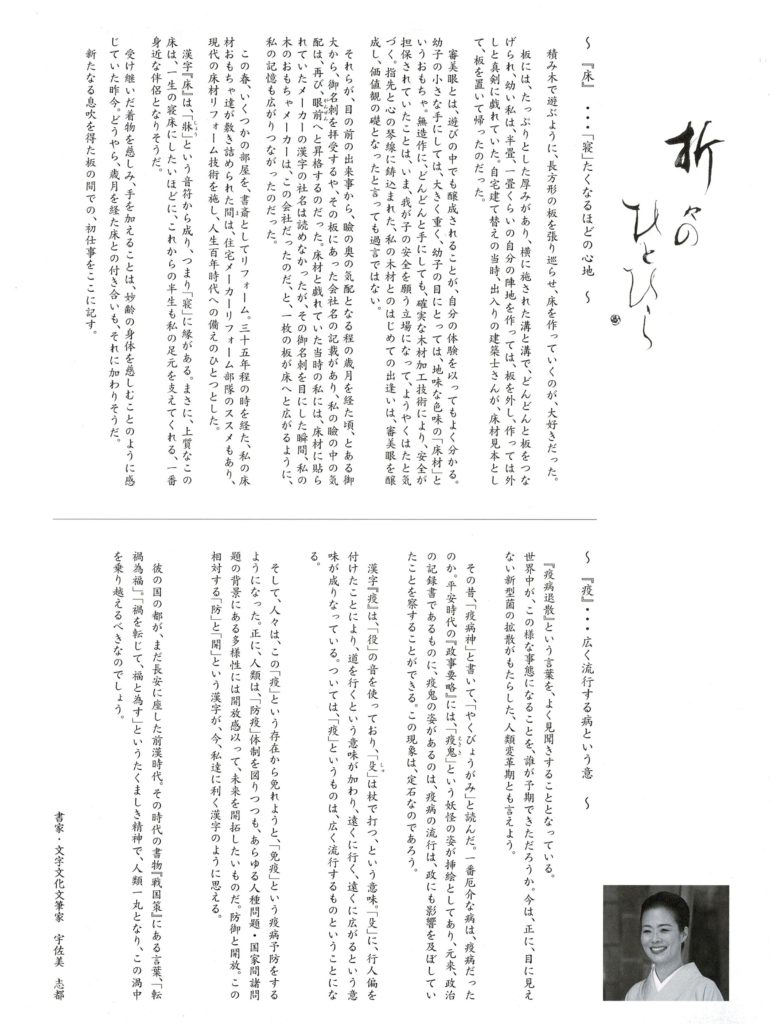 折々のひとひら
～ 『床』 ・・・「寝」たくなるほどの心地 ～
積み木で遊ぶように、長方形の板を張り巡らせ、床を作っていくのが、大好きだった。
板には、たっぷりとした厚みがあり、横に施された溝と溝で、どんどんと板をつな
げられ、幼い私は、半畳、一畳くらいの自分の陣地を作っては、板を外し、作っては外
しと真剣に戯れていた。自宅建て替えの当時、出入りの建築士さんが、床材見本とし
て、板を置いて帰ったのだった。
審美眼とは、遊びの中でも醸成されることが、自分の体験を以ってもよく分かる。
幼子の小さな手にしては、大きく重く、幼子の目にとっては、地味な色味の「床材」と
いうおもちゃ。無造作に、どんどんと手にしても、確実な木材加工技術により、安全が
担保されていたことは、いま、我が子の安全を願う立場になって、ようやくはたと気
づく。指先と心の琴線に鋳込まれた、私の木材とのはじめての出逢いは、審美眼を醸
成し、価値観の礎となったと言っても過言ではない。
それらが、目の前の出来事から、瞼の奥の気配となる程の歳月を経た頃、とある御
犬から、御名刺を拝受するや、その板にあった会社名の記載があり、私の瞼の中の気
配は、再び、眼前へと昇格するのだった。床材と戯れていた当時の私には、床材に貼ら
れていたメーカーの漢字の社名は読めなかったが、その御名刺を目にした瞬間、私の
木のおもちゃメーカーは、この会社だったのだ、と、一枚の板が床へと広がるように、
私の記憶も広がりつながったのだった。
この春、いくつかの部屋を、書斎としてリフォーム。三十五年程の時を経た、私の床
材おもちゃ達が敷き詰められた間は、住宅メーカーリフォーム部隊のススメもあり、
現代の床材リフォーム技術を施し、人生百年時代への備えのひとつとした。
漢字『床』は、「牀」という音符から成り、つまり「寝」に縁がある。まさに、上質なこの
床は、一生の寝床にしたいほどに、これからの半生も私の足元を支えてくれる、一番
身近な伴侶となりそうだ。
受け継いだ着物を慈しみ、手を加えることは、妙齢の身体を慈しむことのように感
じていた昨今。どうやら、歳月を経た床との付き合いも、それに加わりそうだ。
新たなる息吹を得た板の間での、初仕事をここに記す。
～ 『疫』・・・広く流行する病という意 ～
『疫病退散』という言葉を、よく見聞きすることとなっている。
世界中が、この様な事態になることを、誰が予期できただろうか。今は、正に、目に見え
ない新型菌の拡散がもたらした、人類変革期とも言えよう。
その昔、「疫病神」と書いて、「やくびょうがみ」と読んだ。一番厄介な病は、疫病だった
のか。平安時代の『政事要略』には、「疫鬼」という妖怪の姿が挿絵としてあり、元来、政治
の記録書であるものに、疫鬼の姿があるのは、疫病の流行は、政にも影響を及ぼしてい
たことを察することができる。この現象は、定石なのであろう。
漢字『疫』は、「役」の音を使っており、「殳」は杖で打つ、という意味。「殳」に、行人偏を
付けたことにより、道を行くという意味が加わり、遠くに行く、遠くに広がるという意
味が成りなっている。ついては、「疫」というものは、広く流行するものということにな
る。
そして、人々は、この「疫」という存在から免れようと、「免疫」という疫病予防をする
ようになった。正に、人類は、「防疫」体制を図りつつも、あらゆる人種問題・国家間諸問
題の背景にある多様性には開放感以って、未来を開拓したいものだ。防御と開放。この
相対する「防」と「開」という漢字が、今、私達に利く漢字のように思える。
彼の国の都が、まだ長安に座した前漢時代。その時代の書物『戦国策』にある言葉、「転
禍為福」。「禍を転じて、福と為す」というたくましき精神で、人類一丸となり、この渦中
を乗り越えるべきなのでしょう。
書家・文字文化文筆家 宇佐美 志都